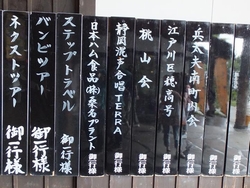 兵太夫南町内会 御一行様
江戸川至穂高号 御一行様
桃山会 御一行様
静岡混声合唱TERRA 御一行様
日本ハム食品(株)桑名プラント 御一行様
ステップトラベル 御一行様
バンビツアー 御一行様
ネクストツアー 御一行様